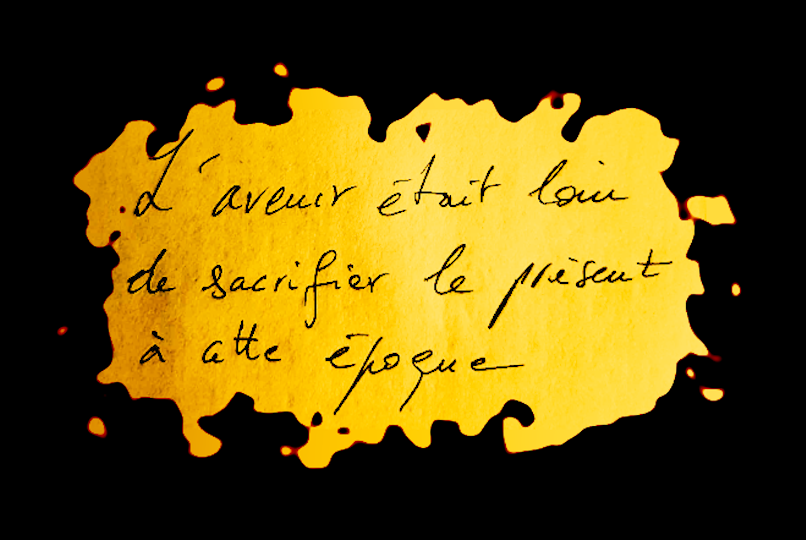 L'avenir était loin
de sacrifier le présent
à cette époque